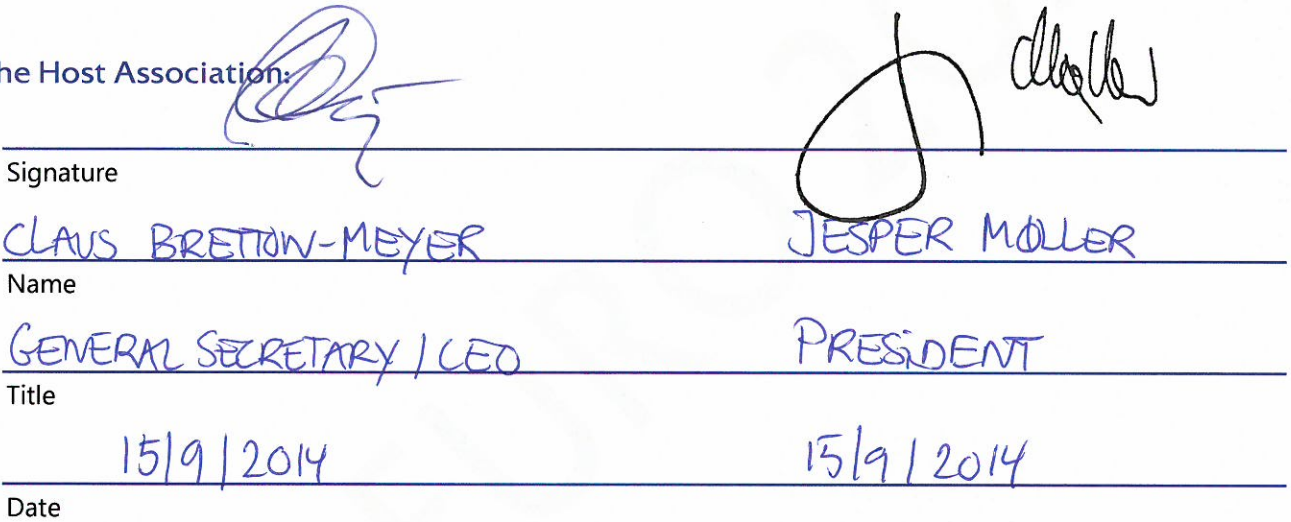 he Host Association:
Signature
CLAUS BRETTON-MEYER JESPER MØLLER
Name
GENERAL SECRETARY / CEO PRESIDENT
Title
15/9/2014 15/9/2014
Date